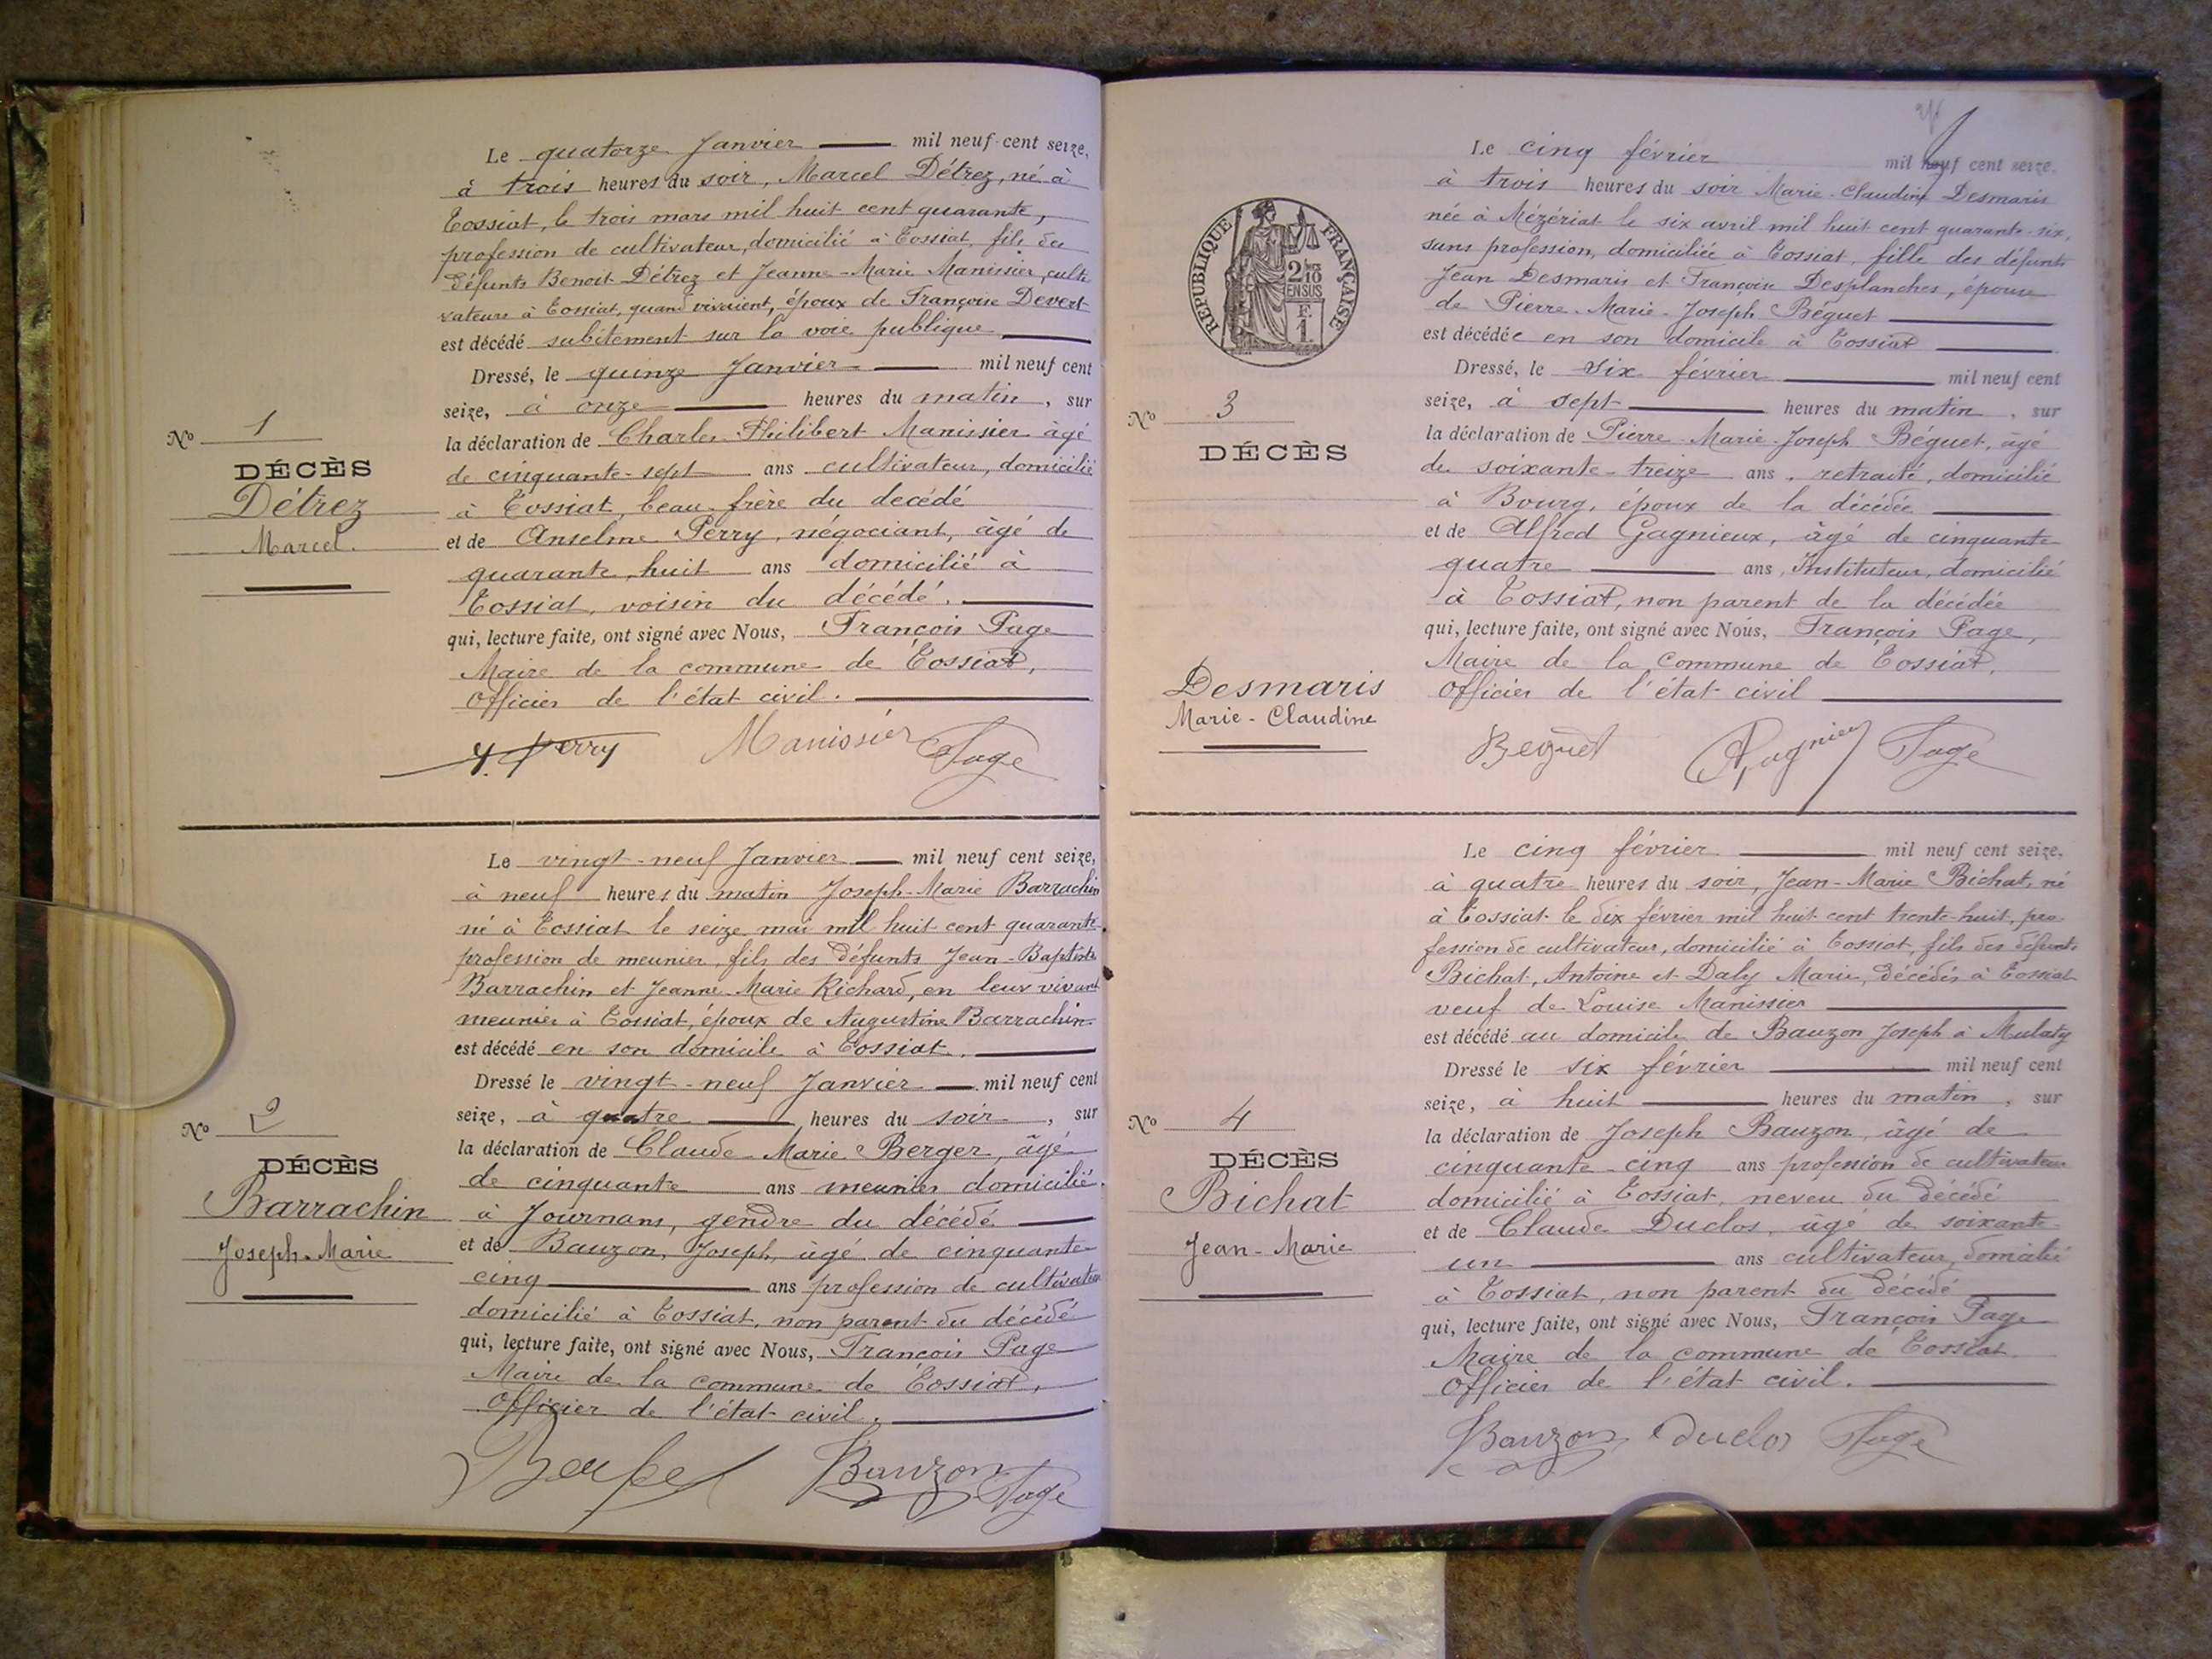 Le quatorze Janvier mil neuf cent seize,
à trois heures du soir, Marcel Détrez, né à
Tossiat, le trois mars mil huit cent quarante,
profession de cultivateur, domicilié à Tossiat, fils de
défunts Benoit Détrez et Jeanne-Marie Manissier, culti
vateurs à Tossiat, quand vivaient, époux de Françoise Devert
est décédé subitement sur la voie publique
Dressé, le quinze Janvier mil neuf cent
seize, à onze heures du matin, sur
la déclaration de Charles Philibert Manissier âgé
de cinquante-sept ans cultivateur, domicilié
à Tossiat, beau-frère du décédé
et de Anselme Perry, négociant, âgé de
quarante huit ans domicilié à
Tossiat, voisin du décédé.
qui, lecture faite, ont signé avec Nous, François Page
Maire de la commune de Tossiat,
Officier de l'état civil.
Perry Manissier Page
No 1
DÉCÈS
Détrez
Marcel.
Le vingt-neuf Janvier mil neuf cent seize,
à neuf heures du matin Joseph-Marie Barrachin
né à Tossiat le seize mai mil huit cent quarante
profession de meunier, fils des défunts Jean-Baptiste
Barrachin et Jeanne-Marie Richard, en leur vivant
meunier à Tossiat, époux de Augustine Barrachin
est décédé en son domicile à Tossiat.
Dressé le vingt-neuf Janvier mil neuf cent
seize, à quatre heures du soir, sur
la déclaration de Claude Marie Berger, âgé
de cinquante ans meunier domicilié
à Journans, gendre du décédé
et de Bauzon, Joseph, âgé de cinquante
cinq ans profession de cultivateur
domicilié à Tossiat, non parent du décédé
qui, lecture faite, ont signé avec Nous, François Page
Maire de la commune de Tossiat,
Officier de l'état civil.
Bauzon Page
No 2
DÉCÈS
Barrachin
Joseph-Marie
RÉPUBLIQUE FRANÇAISE
2/10
EN SUS
F.
1.
Le cinq février mil neuf cent seize.
à trois heures du soir Marie-Claudine Desmaris
née à Mézériat le six avril mil huit cent quarante-six,
sans profession, domiciliée à Tossiat, fille des défunts
Jean Desmaris et Françoise Desplanches, épouse
de Pierre-Marie-Joseph Béguet
est décédée en son domicile à Tossiat
Dressé, le six février mil neuf cent
seize, à sept heures du matin, sur
la déclaration de Pierre-Marie-Joseph Béguet, âgé
de soixante-treize ans, retraité, domicilié
à Bourg, époux de la décédée
et de Alfred Gagnieux, âgé de cinquante
quatre ans, Instituteur, domicilié
à Tossiat, non parent de la décédée
qui, lecture faite, ont signé avec Nous, François Page,
Maire de la commune de Tossiat,
Officier de l'état civil
Beguet Gagnieux Page
No 3
DÉCÈS
Desmaris
Marie-Claudine
Le cinq février mil neuf cent seize,
à quatre heures du soir, Jean-Marie Bichat, né
à Tossiat le dix février mil huit cent trente-huit, pro
fession de cultivateur, domicilié à Tossiat, fils des défunts
Bichat, Antoine et Daly Marie, décédés à Tossiat
veuf de Louise Manissier
est décédé au domicile de Bauzon Joseph à Mulaty
Dressé le six février mil neuf cent
seize, à huit heures du matin, sur
la déclaration de Joseph Bauzon, âgé de
cinquante-cinq ans profession de cultivateur
domicilié à Tossiat, neveu du décédé
et de Claude Duclos, âgé de soixante
un ans cultivateur, domicilié
à Tossiat, non parent du décédé
qui, lecture faite, ont signé avec Nous, François Page
Maire de la commune de Tossiat
Officier de l'état civil.
Bauzon Duclos Page
No 4
DÉCÈS
Bichat
Jean-Marie